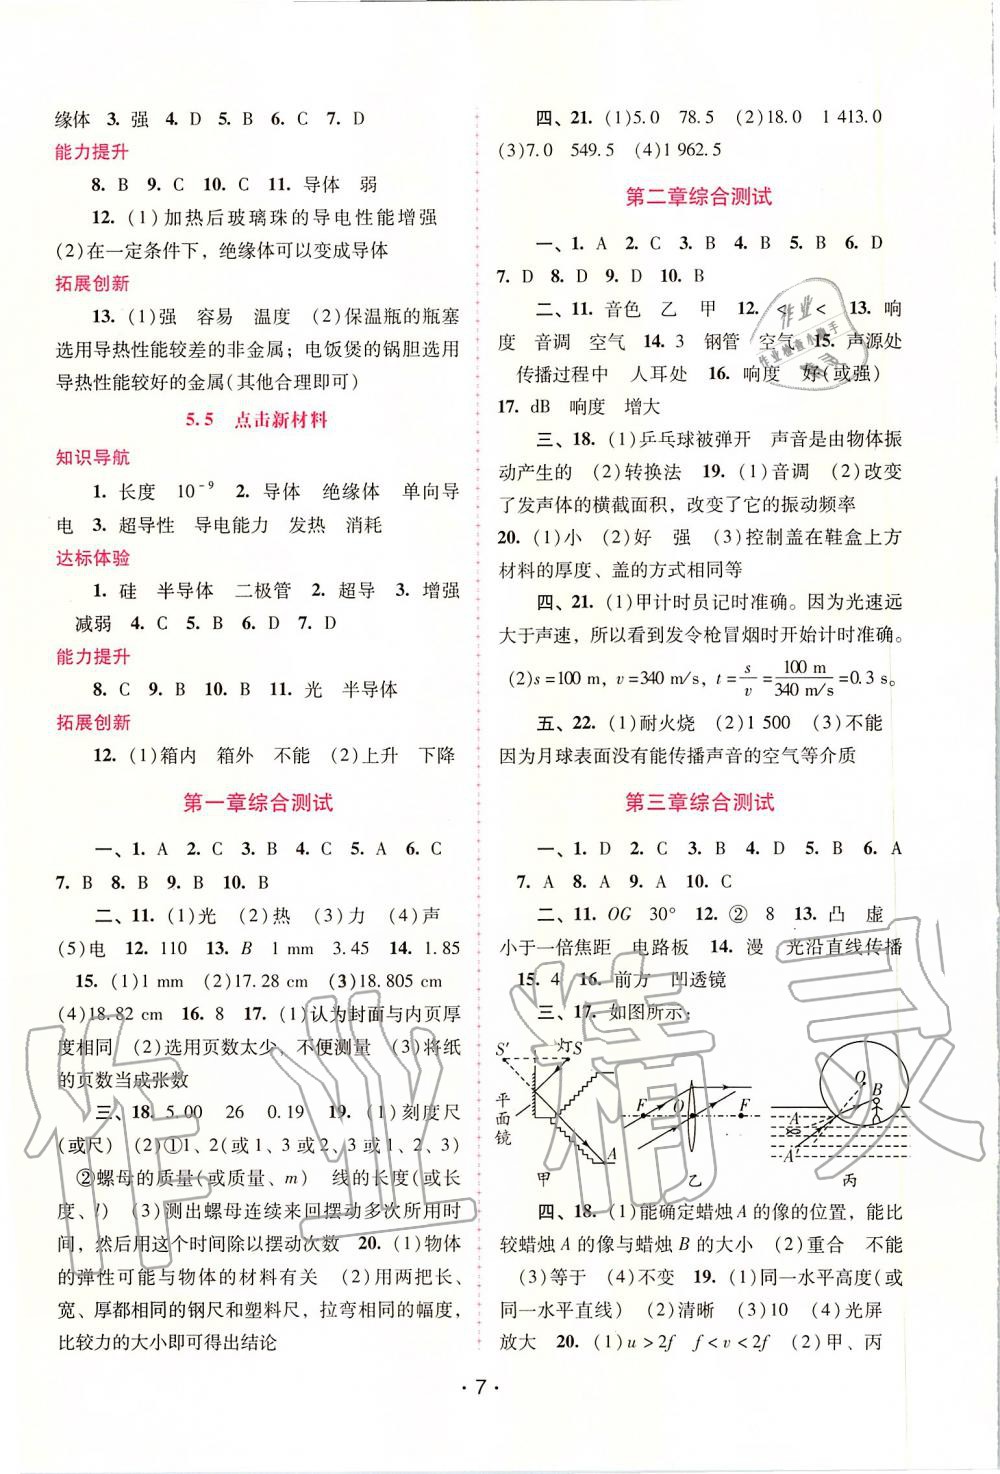 缘体 3. 强 4. D 5. B 6. C 7. D
能力提升
8. B 9. C 10. C 11. 导体 弱
12. (1)加热后玻璃珠的导电性能增强
(2)在一定条件下，绝缘体可以变成导体
拓展创新
13. (1)强 容易 温度 (2)保温瓶的瓶塞
选用导热性能较差的非金属；电饭煲的锅胆选用
导热性能较好的金属(其他合理即可)
5.5 点击新材料
知识导航
1. 长度 10⁻⁹ 2. 导体 绝缘体 单向导
电 3. 超导性 导电能力 发热 消耗
达标体验
1. 硅 半导体 二极管 2. 超导 3. 增强
减弱 4. C 5. B 6. D 7. D
能力提升
8. C 9. B 10. B 11. 光 半导体
拓展创新
12. (1)箱内 箱外 不能 (2)上升 下降
第一章综合测试
一、1. A 2. C 3. B 4. C 5. A 6. C
7. B 8. B 9. B 10. B
二、11. (1)光 (2)热 (3)力 (4)声
(5)电 12. 110 13. B 1 mm 3.45 14. 1.85
15. (1)1 mm (2)17.28 cm (3)18.805 cm
(4)18.82 cm 16. 8 17. (1)认为封面与内页厚
度相同 (2)选用页数太少，不便测量 (3)将纸
的页数当成张数
三、18. 5.00 26 0.19 19. (1)刻度尺
(或尺) (2)①1、2(或1、3或2、3或1、2、3)
②螺母的质量(或质量、m) 线的长度(或长
度、l) (3)测出螺母连续来回摆动多次所用时
间，然后用这个时间除以摆动次数 20. (1)物体
的弹性可能与物体的材料有关 (2)用两把长、
宽、厚都相同的钢尺和塑料尺，拉弯相同的幅度，
比较力的大小即可得出结论
四、21. (1)5.0 78.5 (2)18.0 1 413.0
(3)7.0 549.5 (4)1 962.5
第二章综合测试
一、1. A 2. C 3. B 4. B 5. B 6. D
7. D 8. D 9. D 10. B
二、11. 音色 乙 甲 12. < < 13. 响
度 音调 空气 14. 3 钢管 空气 15. 声源处
传播过程中 人耳处 16. 响度 好(或强)
17. dB 响度 增大
三、18. (1)乒乓球被弹开 声音是由物体振
动产生的 (2)转换法 19. (1)音调 (2)改变
了发声体的横截面积，改变了它的振动频率
20. (1)小 (2)好 强 (3)控制盖在鞋盒上方
材料的厚度、盖的方式相同等
四、21. (1)甲计时员记时准确。因为光速远
大于声速，所以看到发令枪冒烟时开始计时准确。
(2)s=100 m，v=340 m/s，t=s/v=100 m/340 m/s=0.3 s。
五、22. (1)耐火烧 (2)1 500 (3)不能
因为月球表面没有能传播声音的空气等介质
第三章综合测试
一、1. D 2. C 3. B 4. D 5. B 6. A
7. A 8. A 9. A 10. C
二、11. OG 30° 12. ② 8 13. 凸 虚
小于一倍焦距 电路板 14. 漫 光沿直线传播
15. 4 16. 前方 凹透镜
三、17. 如图所示：
S′ 灯S
平面镜
A
甲
F O F
乙
O B
A
A′
丙
四、18. (1)能确定蜡烛A的像的位置，能比
较蜡烛A的像与蜡烛B的大小 (2)重合 不能
(3)等于 (4)不变 19. (1)同一水平高度(或
同一水平直线) (2)清晰 (3)10 (4)光屏
放大 20. (1)u>2f f<v<2f (2)甲、丙
· 7 ·
作业精灵